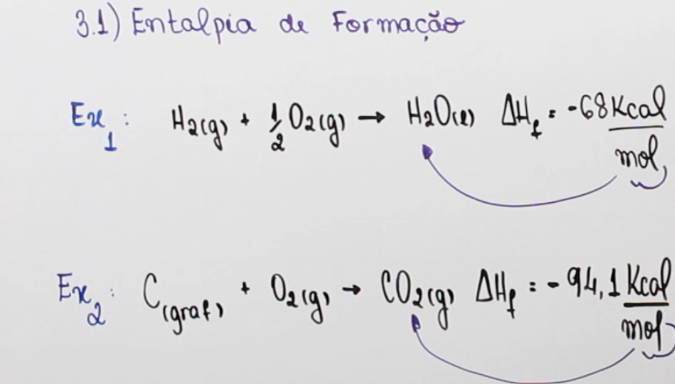 3.1) Entalpia de Formação
Ex1: H2(g) + 1/2 O2(g) → H2O(l) ΔHf = -68 Kcal/mol
Ex2: C(graf) + O2(g) → CO2(g) ΔHf = -94,1 Kcal/mol